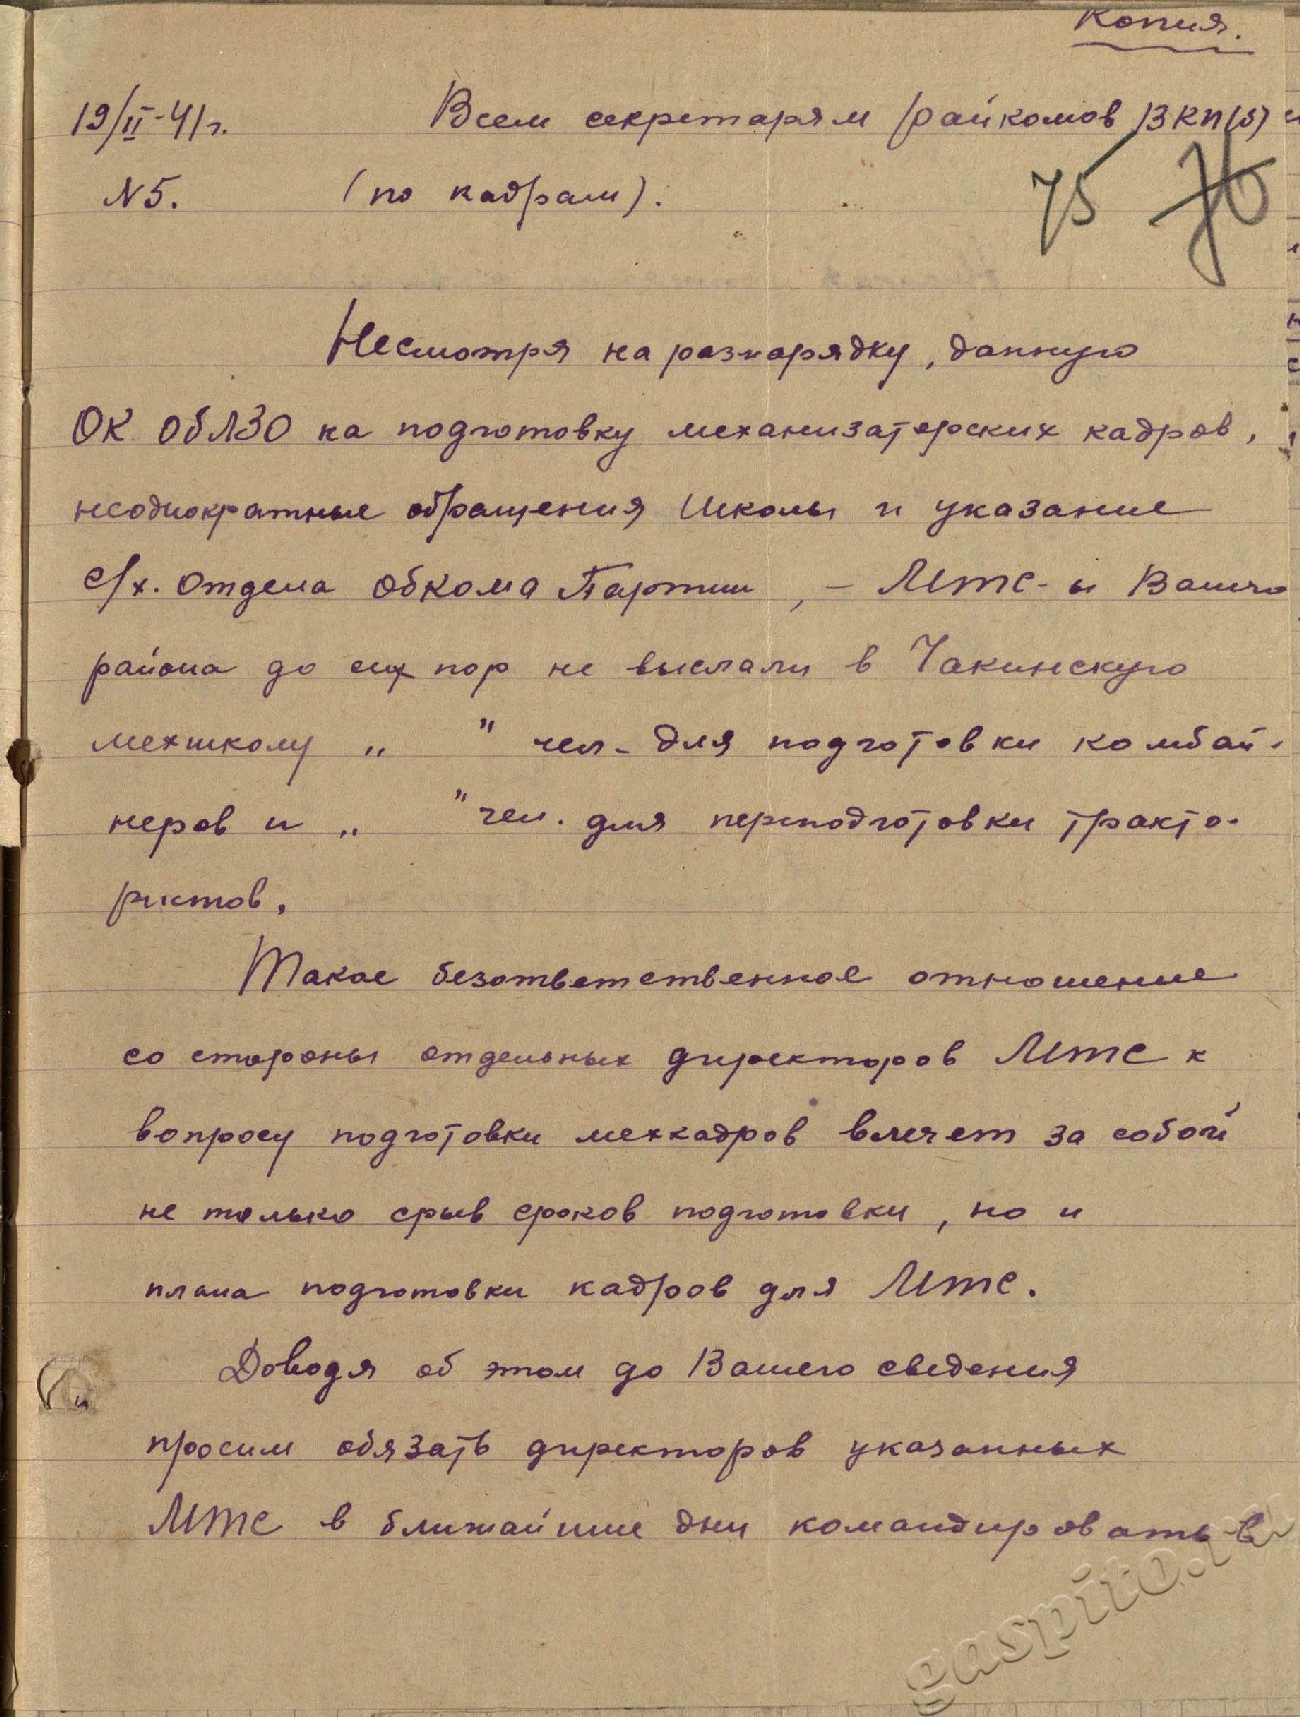 Копия.
19/II-41г. Всем секретарям райкомов ВКП(б)
№5. (по кадрам).
75 76
Несмотря на разнарядку, данную
ОК ОблЗО на подготовку механизаторских кадров,
неоднократные обращения Школы и указание
с/х. отдела Обкома Партии, – МТС-ы Вашего
района до сих пор не выслали в Чакинскую
мехшколу „ " чел. для подготовки комбай-
неров и „ " чел. для переподготовки тракто-
ристов.
Такое безответственное отношение
со стороны отдельных директоров МТС к
вопросу подготовки мехкадров влечет за собой
не только срыв сроков подготовки, но и
плана подготовки кадров для МТС.
Доводя об этом до Вашего сведения
просим обязать директоров указанных
МТС в ближайшие дни командировать в
gaspito.ru